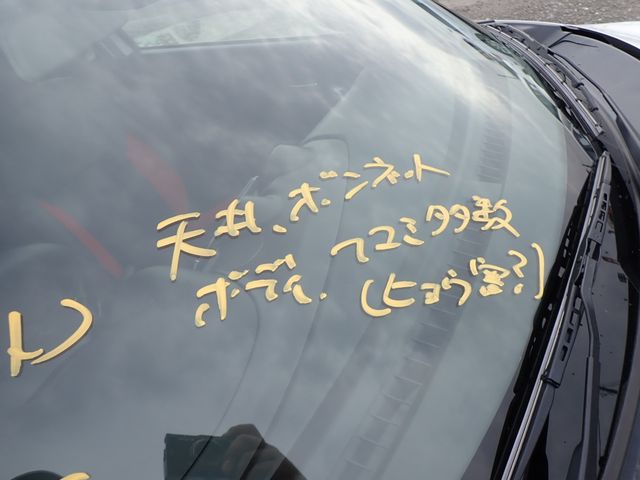 天井、ボンネット
ボディ、ヘコミ多数
(ヒョウ害?)